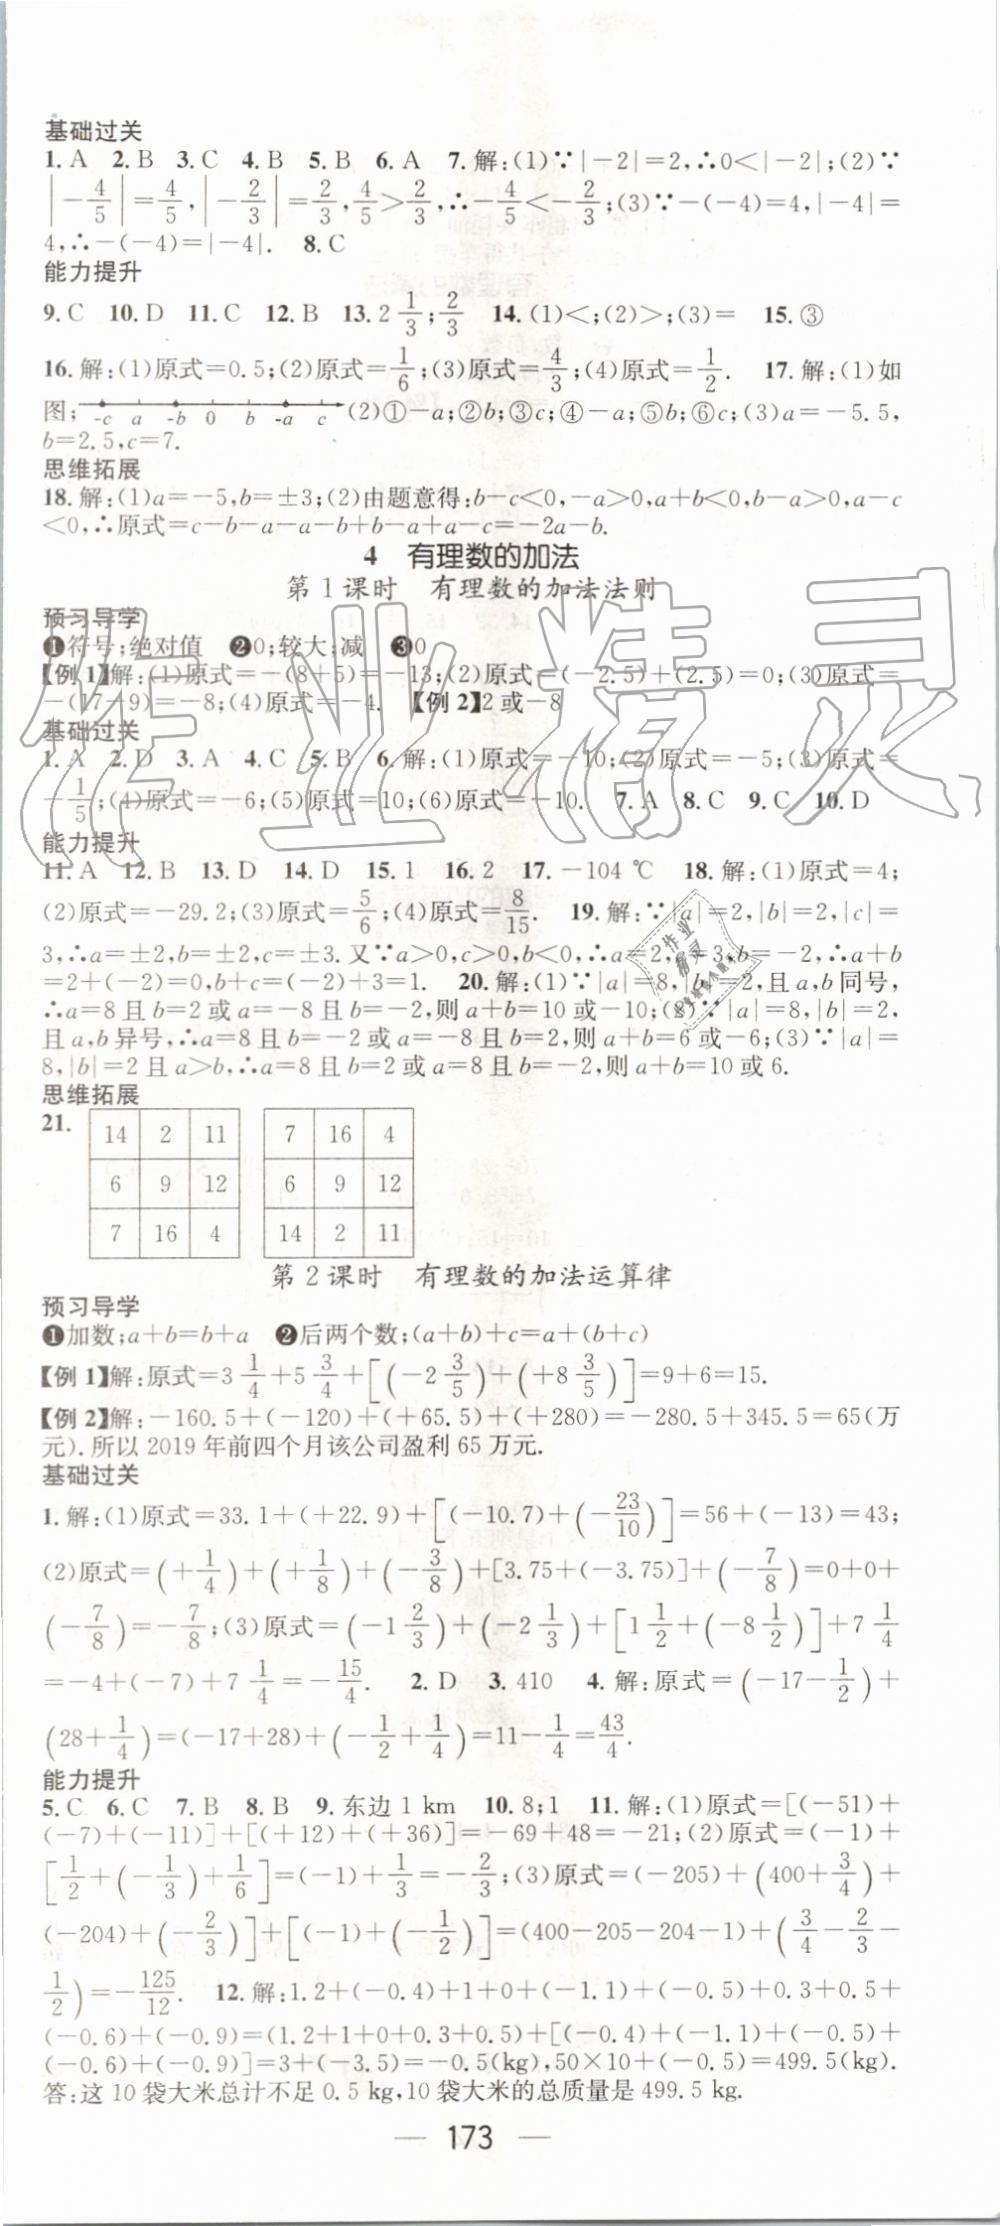 基础过关
1. A 2. B 3. C 4. B 5. B 6. A 7. 解:(1)∵|-2|=2,∴0<|-2|;(2)∵
|-4/5|=4/5,|-2/3|=2/3,4/5>2/3,∴-4/5<-2/3;(3)∵-(-4)=4,|-4|=
4,∴-(-4)=|-4|. 8. C
能力提升
9. C 10. D 11. C 12. B 13. 2 1/3;2/3 14. (1)<;(2)>;(3)= 15. ③
16. 解:(1)原式=0.5;(2)原式=1/6;(3)原式=4/3;(4)原式=1/2. 17. 解:(1)如
图; -c a -b 0 b -a c (2)①-a;②b;③c;④-a;⑤b;⑥c;(3)a=-5.5,
b=2.5,c=7.
思维拓展
18. 解:(1)a=-5,b=±3;(2)由题意得:b-c<0,-a>0,a+b<0,b-a>0,a-c
<0,∴原式=c-b-a-a-b+b-a+a-c=-2a-b.
4 有理数的加法
第1课时 有理数的加法法则
预习导学
❶符号;绝对值 ❷0;较大;减 ❸0
【例1】解:(1)原式=-(8+5)=-13;(2)原式=(-2.5)+(2.5)=0;(3)原式=
-(17-9)=-8;(4)原式=-4. 【例2】2或-8
基础过关
1. A 2. D 3. A 4. C 5. B 6. 解:(1)原式=-10;(2)原式=-5;(3)原式=
-1/5;(4)原式=-6;(5)原式=10;(6)原式=-10. 7. A 8. C 9. C 10. D
能力提升
11. A 12. B 13. D 14. D 15. 1 16. 2 17. -104 ℃ 18. 解:(1)原式=4;
(2)原式=-29.2;(3)原式=5/6;(4)原式=8/15. 19. 解:∵|a|=2,|b|=2,|c|=
3,∴a=±2,b=±2,c=±3.又∵a>0,c>0,b<0,∴a=2,c=3,b=-2,∴a+b
=2+(-2)=0,b+c=(-2)+3=1. 20. 解:(1)∵|a|=8,|b|=2,且a,b同号,
∴a=8且b=2或a=-8且b=-2,则a+b=10或-10;(2)∵|a|=8,|b|=2,
且a,b异号,∴a=8且b=-2或a=-8且b=2,则a+b=6或-6;(3)∵|a|=
8,|b|=2且a>b,∴a=8且b=2或a=8且b=-2,则a+b=10或6.
思维拓展
21.
14 2 11 7 16 4
6 9 12 6 9 12
7 16 4 14 2 11
第2课时 有理数的加法运算律
预习导学
❶加数;a+b=b+a ❷后两个数;(a+b)+c=a+(b+c)
【例1】解:原式=3 1/4+5 3/4+[(-2 3/5)+(+8 3/5)]=9+6=15.
【例2】解:-160.5+(-120)+(+65.5)+(+280)=-280.5+345.5=65(万
元).所以2019年前四个月该公司盈利65万元.
基础过关
1. 解:(1)原式=33.1+(+22.9)+[(-10.7)+(-23/10)]=56+(-13)=43;
(2)原式=(+1/4)+(+1/8)+(-3/8)+[3.75+(-3.75)]+(-7/8)=0+0+
(-7/8)=-7/8;(3)原式=(-1 2/3)+(-2 1/3)+[1 1/2+(-8 1/2)]+7 1/4
=-4+(-7)+7 1/4=-15/4. 2. D 3. 410 4. 解:原式=(-17-1/2)+
(28+1/4)=(-17+28)+(-1/2+1/4)=11-1/4=43/4.
能力提升
5. C 6. C 7. B 8. B 9. 东边1 km 10. 8;1 11. 解:(1)原式=[(-51)+
(-7)+(-11)]+[(+12)+(+36)]=-69+48=-21;(2)原式=(-1)+
[1/2+(-1/3)+1/6]=(-1)+1/3=-2/3;(3)原式=(-205)+(400+3/4)+
(-204)+(-2/3)]+[(-1)+(-1/2)]=(400-205-204-1)+(3/4-2/3-
1/2)=-125/12. 12. 解:1.2+(-0.4)+1+0+(-1.1)+(-0.5)+0.3+0.5+
(-0.6)+(-0.9)=(1.2+1+0+0.3+0.5)+[(-0.4)+(-1.1)+(-0.5)+
(-0.6)+(-0.9)]=3+(-3.5)=-0.5(kg),50×10+(-0.5)=499.5(kg).
答:这10袋大米总计不足0.5 kg,10袋大米的总质量是499.5 kg.
— 173 —
作业精灵